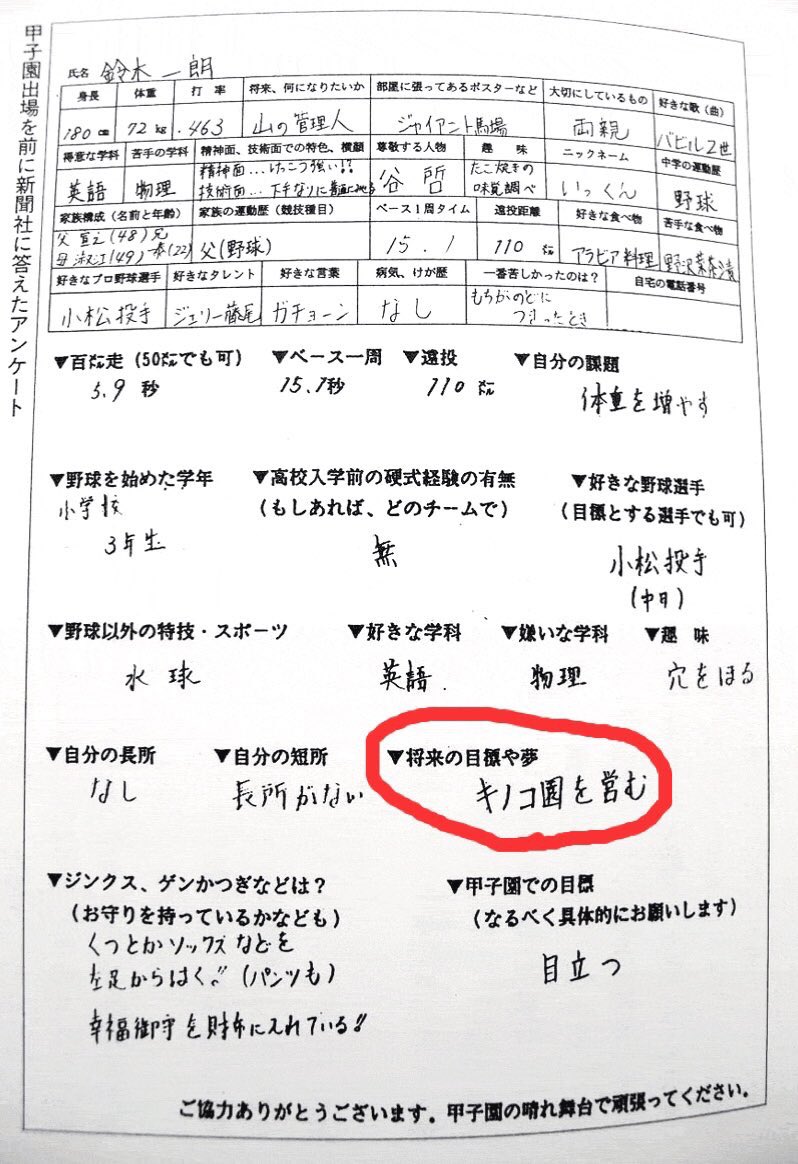 甲子園出場を前に新聞社に答えたアンケート
氏名 鈴木一朗
身長 体重 打率 将来、何になりたいか 部屋に張ってあるポスターなど 大切にしているもの 好きな歌(曲)
180cm 72kg .463 山の管理人 ジャイアント馬場 両親 バビル2世
得意な学科 苦手の学科 精神面、技術面での特色、横顔 尊敬する人物 趣味 ニックネーム 中学の運動歴
英語 物理 精神面…けっこう強い!? 谷哲 たこ焼きの いっくん 野球
技術面…下手なりに 味覚調べ
家族構成(名前と年齢) 家族の運動歴(競技種目) ベース1周タイム 遠投距離 好きな食べ物 苦手な食べ物
父宣之(48)兄 父(野球) 15.1 110㍍ アラビア料理 野沢菜漬
母淑江(49)一泰(22)
好きなプロ野球選手 好きなタレント 好きな言葉 病気、けが歴 一番苦しかったのは? 自宅の電話番号
小松投手 ジェリー藤尾 ガチョーン なし もちがのどに
つまったとき
▼百㍍走(50㍍でも可) ▼ベース一周 ▼遠投 ▼自分の課題
5.9秒 15.1秒 110㍍ 体重を増やす
▼野球を始めた学年 ▼高校入学前の硬式経験の有無 ▼好きな野球選手
小学校 (もしあれば、どのチームで) (目標とする選手でも可)
3年生 無 小松投手
(中日)
▼野球以外の特技・スポーツ ▼好きな学科 ▼嫌いな学科 ▼趣味
水球 英語. 物理 穴をほる
▼自分の長所 ▼自分の短所 ▼将来の目標や夢
なし 長所がない キノコ園を営む
▼ジンクス、ゲンかつぎなどは? ▼甲子園での目標
(お守りを持っているかなども) (なるべく具体的にお願いします)
くつとかソックスなどを 目立つ
左足からはく!! (パンツも)
幸福御守を財布に入れている!!
ご協力ありがとうございます。甲子園の晴れ舞台で頑張ってください。